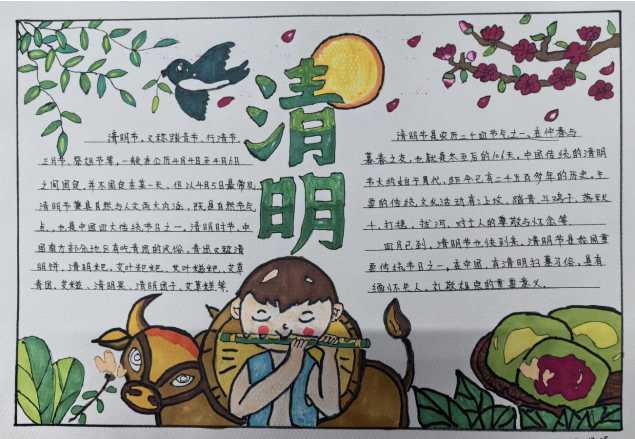 清明
清明节,又称踏青节、行清节、
三月节、祭祖节等,一般在公历4月4日至4月6日
之间固定,并不固定在某一天,但以4月5日最常见,
清明节兼具自然与人文两大内涵,既是自然节气
点,也是中国四大传统节日之一。清明时节,中
国南方部分地区有吃青团的风俗,青团又称清
明饼、清明粑、艾叶粑粑、艾叶糍粑、艾草
青团、艾粄、清明果、清明团子、艾草糕等。
清明节是农历二十四节气之一,在仲春与
暮春之交,也就是冬至后的106天,中国传统的清明
节大约始于周代,距今已有二千五百多年的历史,主
要的传统文化活动有:上坟、踏青、斗鸡子、荡秋
千、打毯、拔河、对亡人的尊敬与怀念等
四月已到,清明节也快到来,清明节是我国重
要传统节日之一,在中国,有清明扫墓习俗,具有
缅怀先人、礼敬祖宗的重要意义。